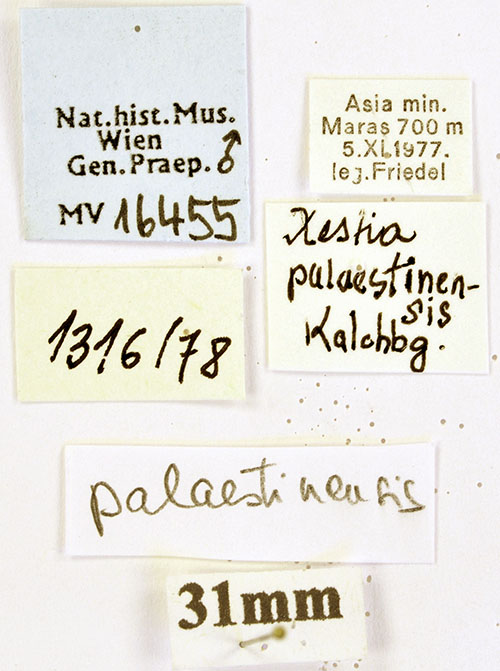 Nat.hist.Mus.
Wien
Gen.Praep. ♂
MV 16455
Asia min.
Maras 700 m
5.XI.1977.
leg.Friedel
Xestia
palaestinen-
sis
Kalchbg.
1316/78
palaestinensis
31mm